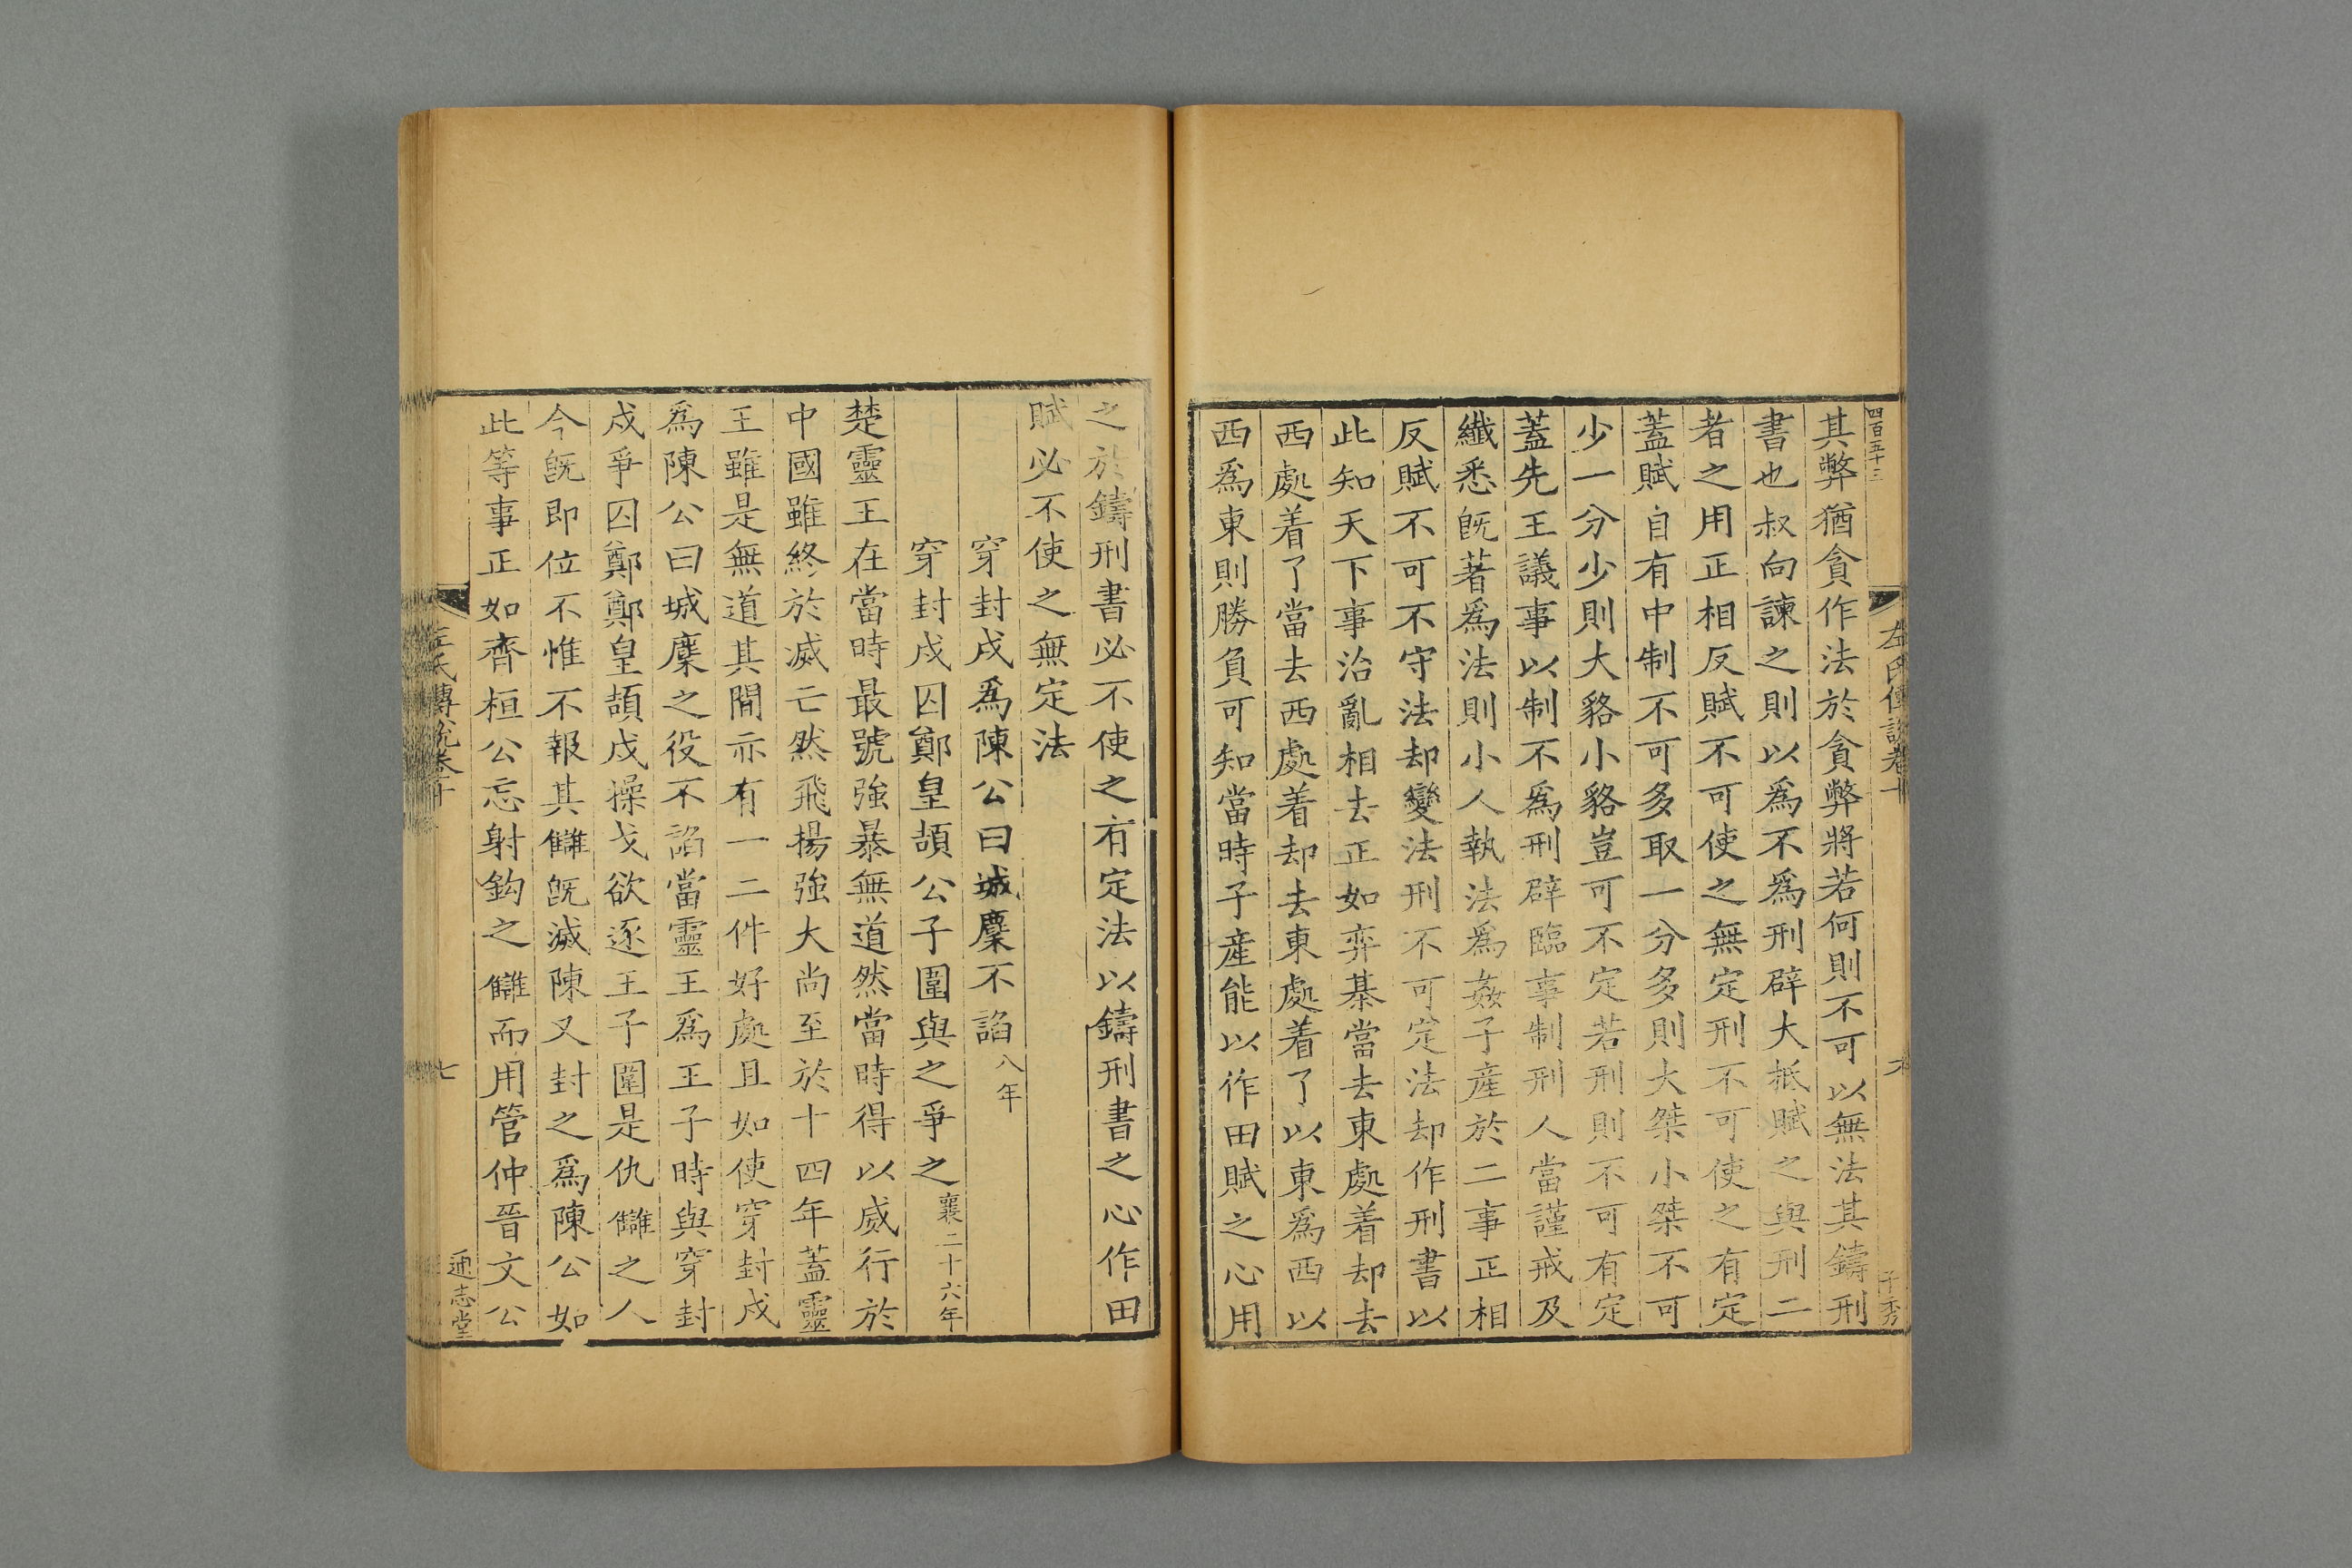 四百五十三
左氏傳說卷十
子秀
其弊猶貪作法於貪弊將若何則不可以無法其鑄刑
書也叔向諫之則以爲不爲刑辟大抵賦之與刑二
者之用正相反賦不可使之無定刑不可使之有定
蓋賦自有中制不可多取一分多則大桀小桀不可
少一分少則大貉小貉豈可不定若刑則不可有定
蓋先王議事以制不爲刑辟臨事制刑人當謹戒及
纖悉旣著爲法則小人執法爲姦子産於二事正相
反賦不可不守法却變法刑不可定法却作刑書以
此知天下事治亂相去正如弈棊當去東處着却去
西處着了當去西處着却去東處着了以東爲西以
西爲東則勝負可知當時子産能以作田賦之心用
之於鑄刑書必不使之有定法以鑄刑書之心作田
賦必不使之無定法
穿封戌爲陳公曰城麇不諂八年
穿封戌囚鄭皇頡公子圍與之爭之襄二十六年
楚靈王在當時最號強暴無道然當時得以威行於
中國雖終於滅亡然飛揚強大尚至於十四年蓋靈
王雖是無道其間亦有一二件好處且如使穿封戌
爲陳公曰城麇之役不諂當靈王爲王子時與穿封
戌爭囚鄭鄭皇頡戌操戈欲逐王子圍是仇讎之人
今旣即位不惟不報其讎旣滅陳又封之爲陳公如
此等事正如齊桓公忘射鈎之讎而用管仲晉文公
左氏傳說卷十
七
通志堂